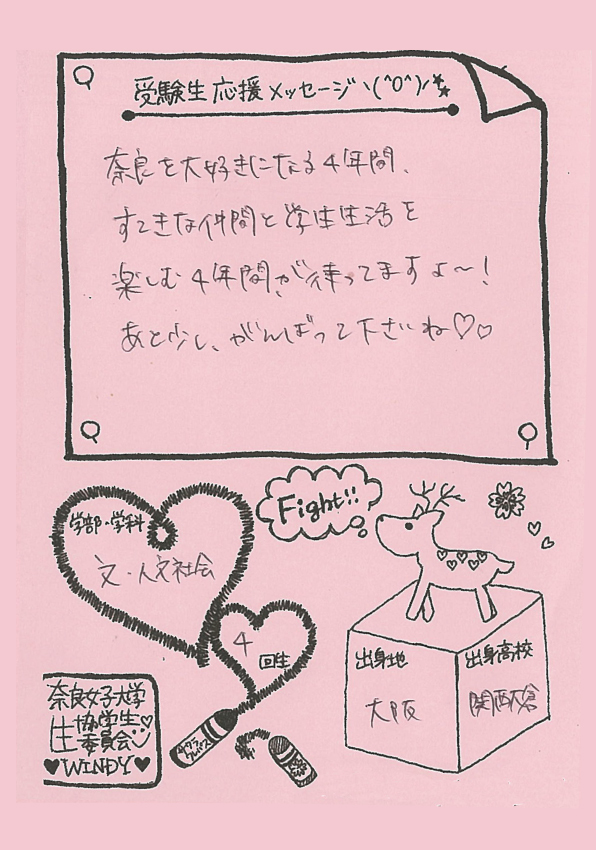 受験生応援メッセージ ヽ(^O^)ノ
奈良を大好きになる4年間、
すてきな仲間と学生生活を
楽しむ4年間が待ってますよ〜！
あと少し、がんばって下さいね♡♡
Fight!!
学部・学科
文・人文社会
4
回生
出身地
大阪
出身高校
関西大倉
奈良女子大学
生協学生
委員会
♥WINDY♥
サクラ
クレパス